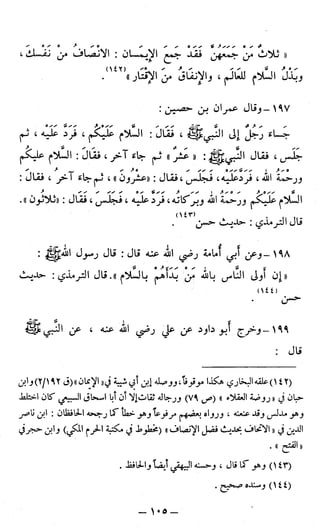 « ثلاثٌ مَنْ جَمَعَهُنَّ فَقَدْ جَمَعَ الإيمـان : الانْصَافُ مِنْ نَفْسِكَ ،
وبَذْلُ السَّلامِ للعَالَمِ ، والإنفَاقُ مِنَ الإقتَارِ »(١٤٢) .
١٩٧ - وقال عمران بن حصين :
جَـاءَ رَجُلٌ إلى النَّبيِّ ﷺ ، فَقَالَ : السلام عَليكُم ، فَرَدَّ عَلَيْهِ ، ثم
جَلَسَ ، فقال النبي ﷺ : « عَشْرٌ » ثم جاء آخر ، فقالَ : السَّلام عليكم
ورحمَةُ الله ، فَردَّ عَليه ، فَجَلَسَ ، فقال : «عِشْرُونَ» ، ثم جاء آخَرُ ، فقالَ :
السلام عَلَيكُم ورحمَةُ الله وبَرَكَاتُه ، فَرَدَّ عَليه ، فَجَلَسَ ، فقال : «ثَلاثُون» .
قال الترمذي : حديث حسن(١٤٣) .
١٩٨ - وعن أبي أمامة رضي الله عنه قال : قال رسول الله ﷺ :
« إن أَولى النَّاسِ باللهِ مَنْ بَدَأَهُم بالسَّلامِ » . قال الترمذي : حديث
حسن(١٤٤) .
١٩٩ - وخرج أبو داود عن علي رضي الله عنه ، عن النبي ﷺ
قال :
(١٤٢) علقه البخاري هكذا موقوفاً ، ووصله ابن أبي شيبة في «الإيمان» (ق ٢/١٩٢) وابن
حبان في « روضة العقلاء » (ص ٧٩) ورجاله ثقات إلا أن أبا اسحاق السبيعي كان اختلط
وهو مدلس وقد عنعنه ، ورواه بعضهم مرفوعاً وهو خطأ كما رجحه الحافظان : ابن ناصر
الدين في «الاتحاف بحديث فضل الإنصاف» (مخطوط في مكتبة الحرم المكي) وابن حجر في
« الفتح » .
(١٤٣) وهو كما قال ، وحسنه البيهقي أيضاً والحافظ .
(١٤٤) وسنده صحيح .
- ١٠٥ -